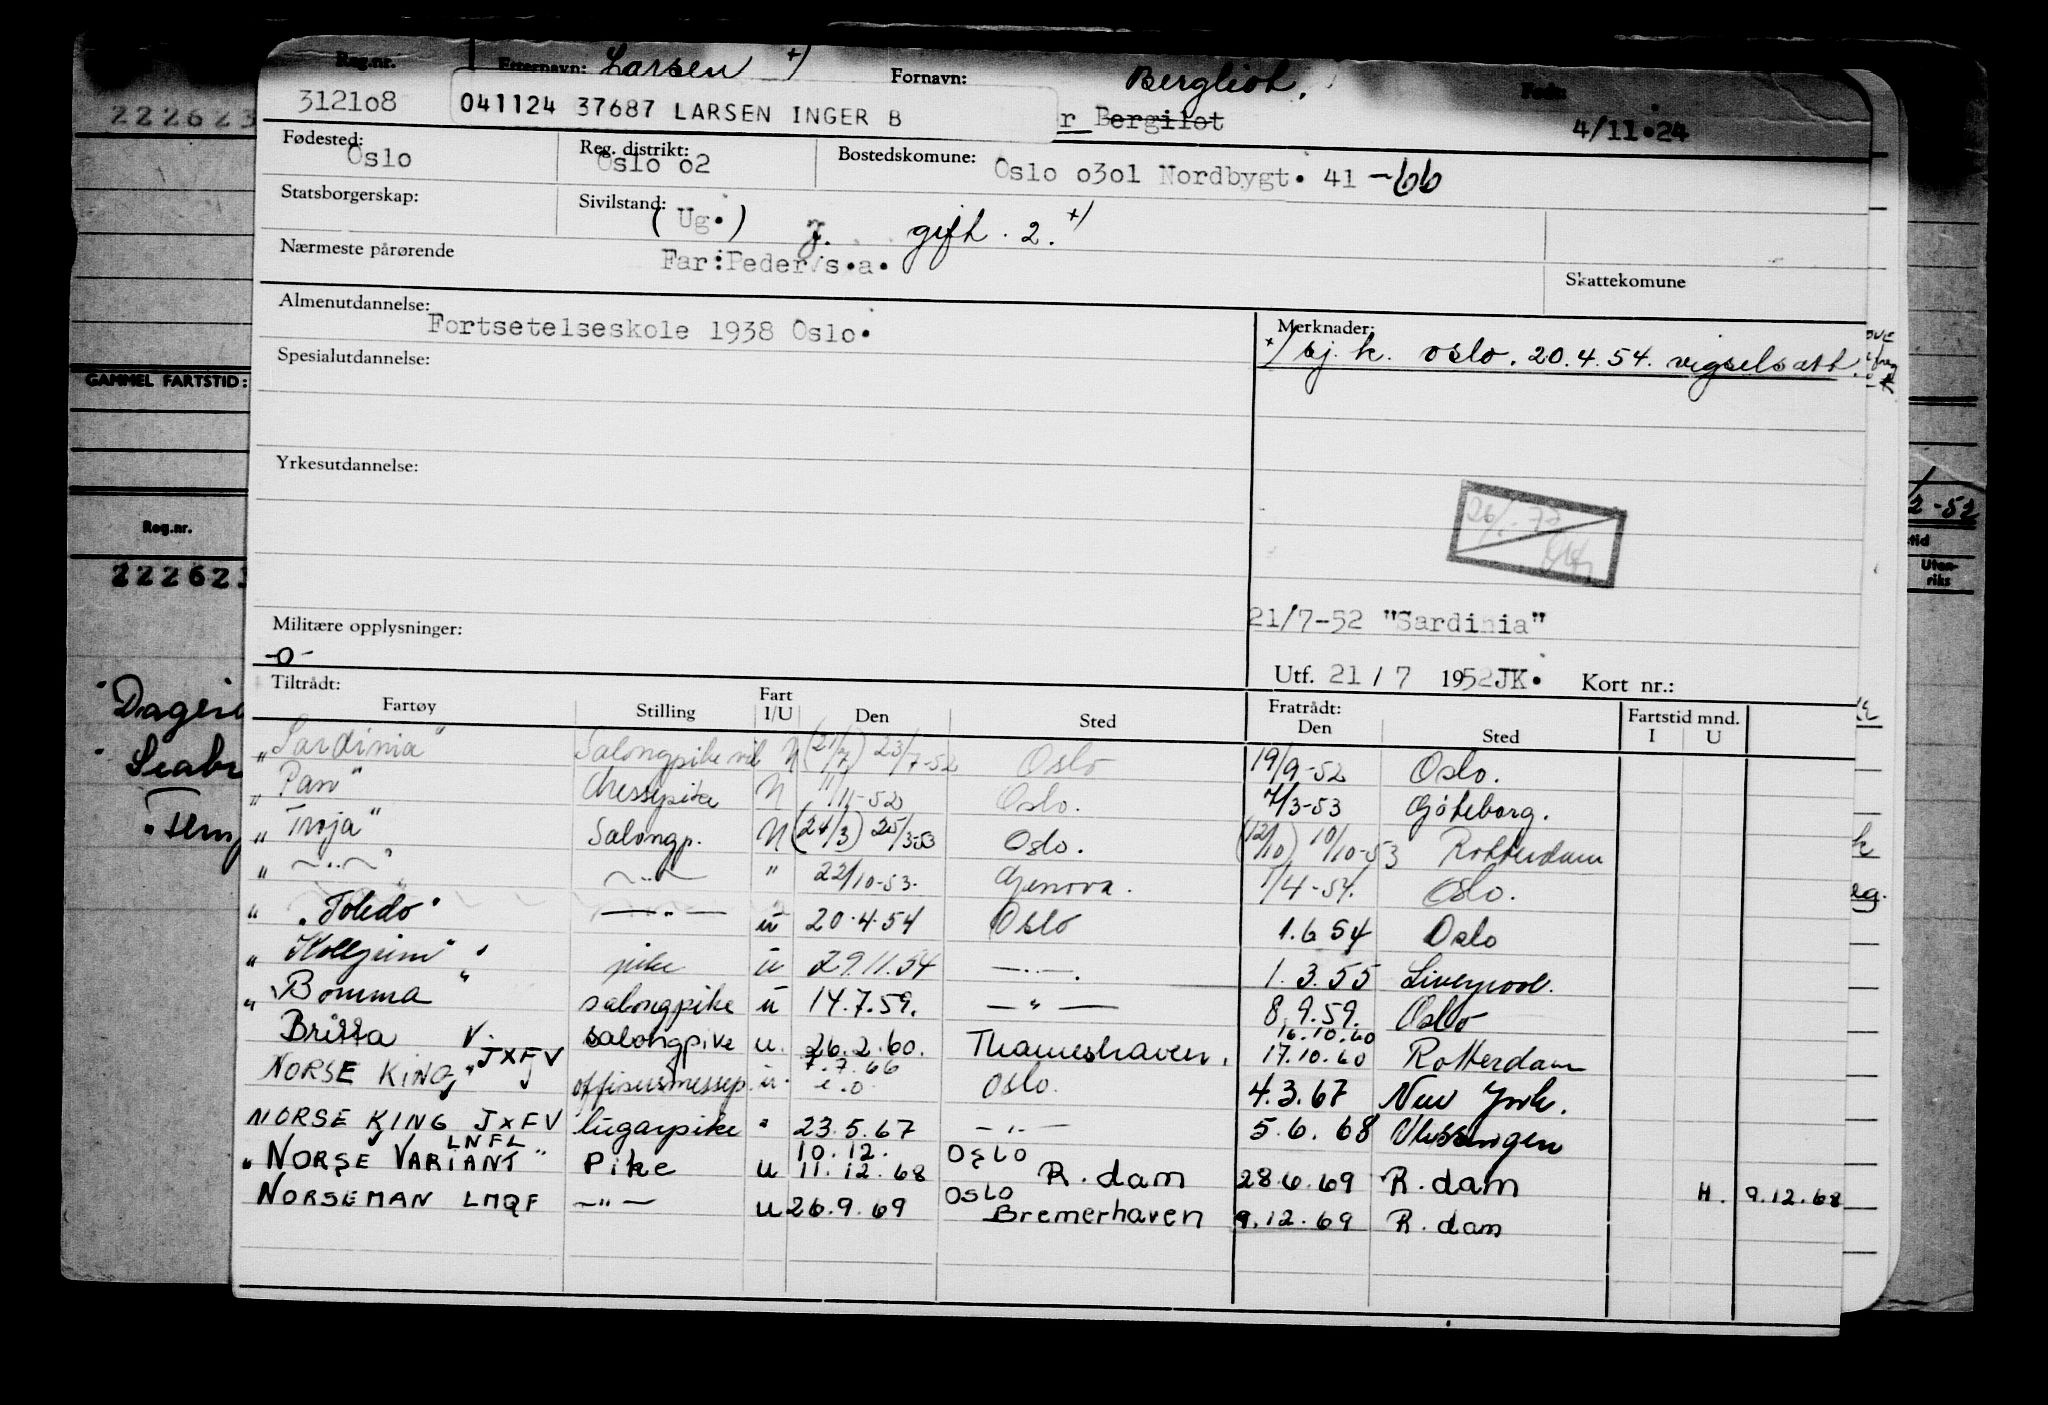 Reg.nr. Etternavn: Larsen +) Fornavn: Bergliot. Født:
312108 041124 37687 LARSEN INGER B r Bergilot 4/11.24
Fødested: Oslo Reg. distrikt: Oslo 02 Bostedskomune: Oslo 0301 Nordbygt. 41 -66
Statsborgerskap: Sivilstand: (Ug.) gift. 2. +)
Nærmeste pårørende Far:Peder s.a. Skattekomune
Almenutdannelse: Fortsetelseskole 1938 Oslo. Merknader:
+) sj. k. Oslo. 20.4.54. vigselsatt.
Spesialutdannelse:
Yrkesutdannelse:
Militære opplysninger: 21/7-52 "Sardinia"
-0-
Utf. 21 / 7 1952JK. Kort nr.:
Tiltrådt: Fratrådt: Fartstid mnd.
Fartøy Stilling Fart I/U Den Sted Den Sted I U
"Sardinia" Salongpike (21/7) 23/7-52 Oslo 19/9-52 Oslo.
"Pan" Messepike U 11/11-52 Oslo. 7/3-53 Göteborg.
"Troja" Salongp. U (24/3) 25/3-53 Oslo. (12/10) 10/10-53 Rotterdam
" -"- -"- " 22/10-53. Genova. 1/4-54. Oslo.
" "Toledo" -"- u 20.4.54 Oslo 1.6 54 Oslo
" pike u 29.11.54 -"- 1.3.55 Liverpool.
" Bomma " salongpike u 14.7.59. -"- 8.9.59. Oslo
16.10.60
Britta V. salongpike u. 26.2.60. Thameshaven. 17.10.60 Rotterdam
JXFV 7.7.66
NORSE KING " u. Oslo. 4.3.67 New York.
NORSE KING JXFV lugarpike " 23.5.67 -"- 5.6.68 Vlissingen
LNFL 10.12. Oslo
"NORSE VARIANT" Pike u 11.12.68 R.dam 28.6.69 R.dam H. 9.12.68
Oslo
NORSEMAN LMQF -"- u 26.9.69 Bremerhaven 9.12.69 R.dam
222623
GAMMEL FARTSTID:
Reg.nr.
Uten-
riks